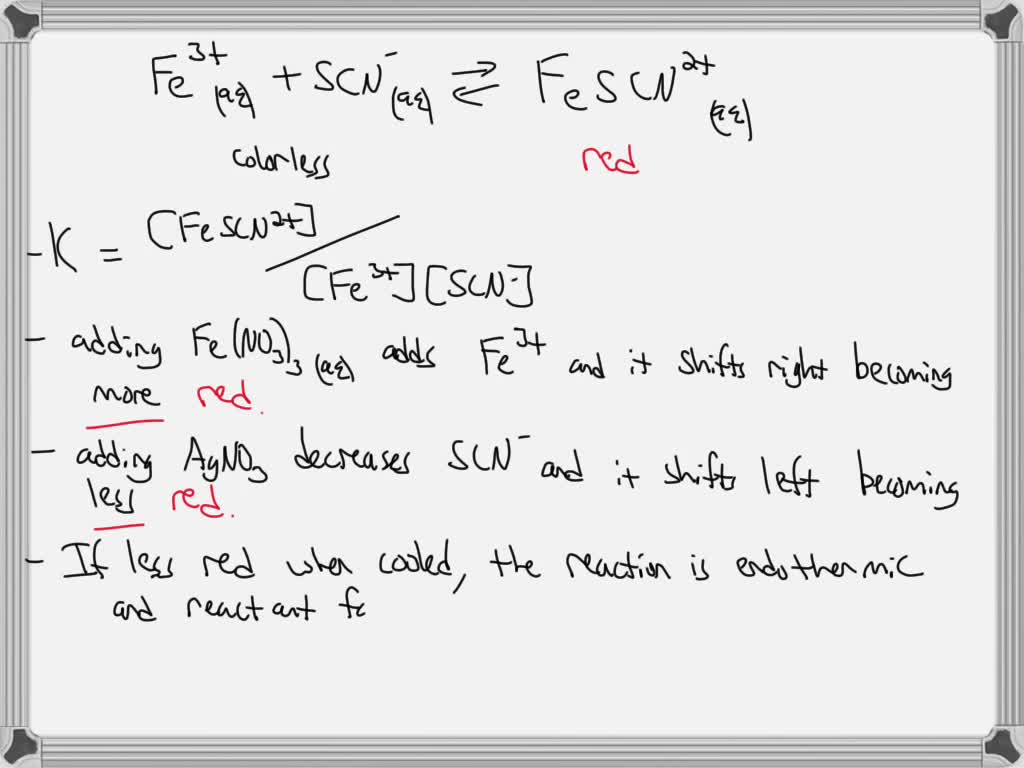 Fe³⁺(aq) + SCN⁻(aq) ⇌ FeSCN²⁺(aq)
colorless red
- K = [FeSCN²⁺] / [Fe³⁺][SCN⁻]
- adding Fe(NO₃)₃(aq) adds Fe³⁺ and it shifts right becoming
more red.
- adding AgNO₃ decreases SCN⁻ and it shifts left becoming
less red.
- If less red when cooled, the reaction is endothermic
and reactant fc